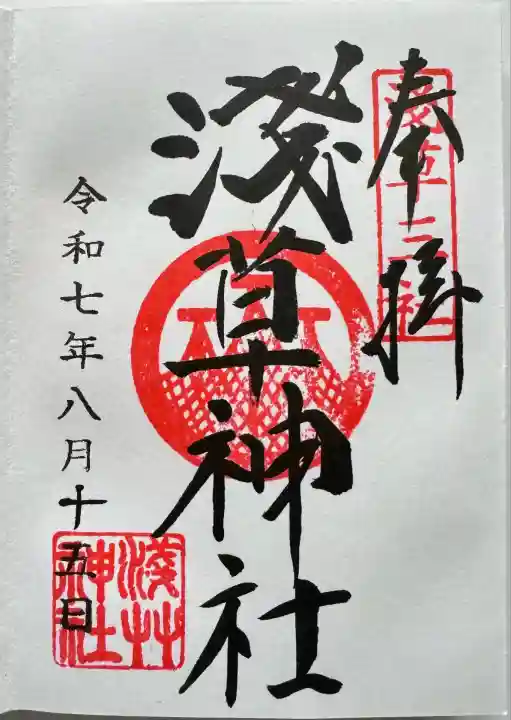 奉拝
淺草三社
淺草神社
淺草神社
令和七年八月十五日